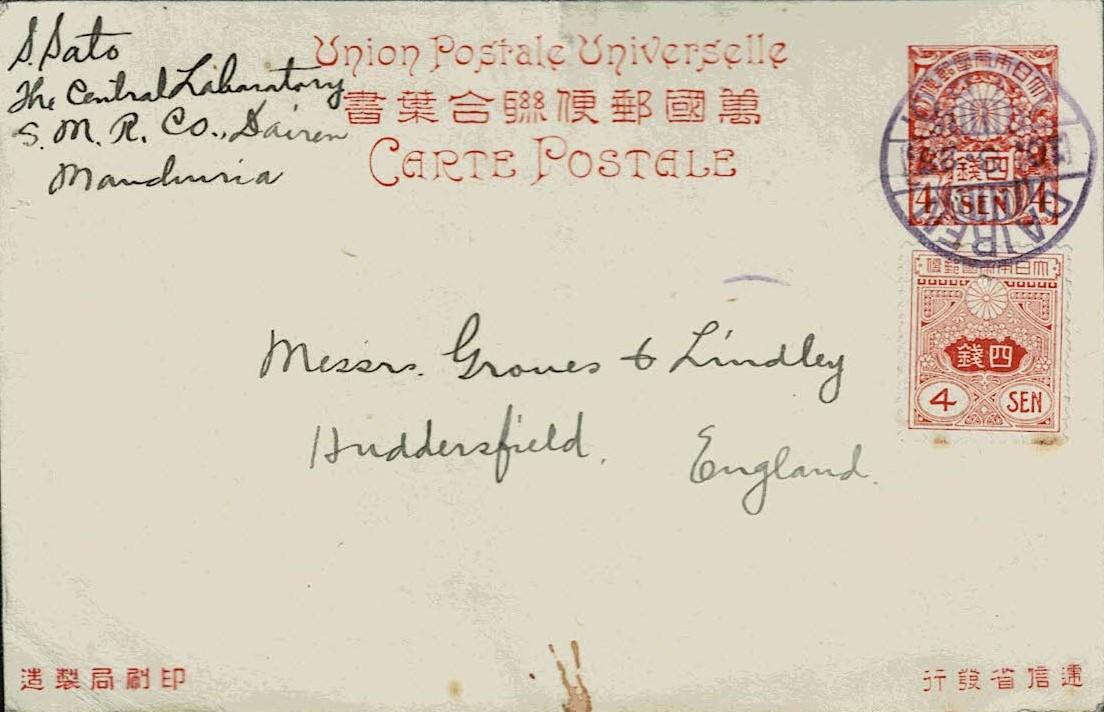 S. Sato
The Central Laboratory
S. M. R. Co., Dairen
Manchuria
Union Postale Universelle
書葉合聯便郵國萬
CARTE POSTALE
錢四
4 SEN 4
DAIREN
便郵國帝本日大
錢四
4 SEN
Messrs. Groves & Lindley
Huddersfield, England.
造製局刷印
行發省信遞